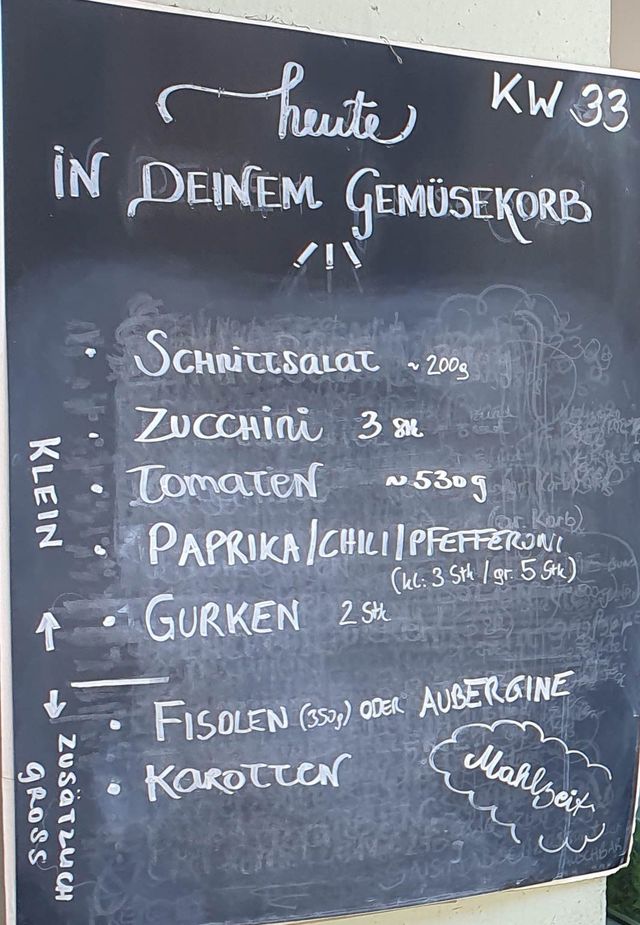 KW 33
heute
IN DEINEM GEMÜSEKORB
• SCHNITTSALAT ~200g
• ZUCCHINI 3 Stk
• TOMATEN ~530g
• PAPRIKA/CHILI/PFEFFERONI
(kl: 3 Stk / gr. 5 Stk)
• GURKEN 2 Stk
KLEIN ↑
• FISOLEN (350g) ODER AUBERGINE
• KAROTTEN
↓ ZUSÄTZLICH
GROSS
Mahlzeit